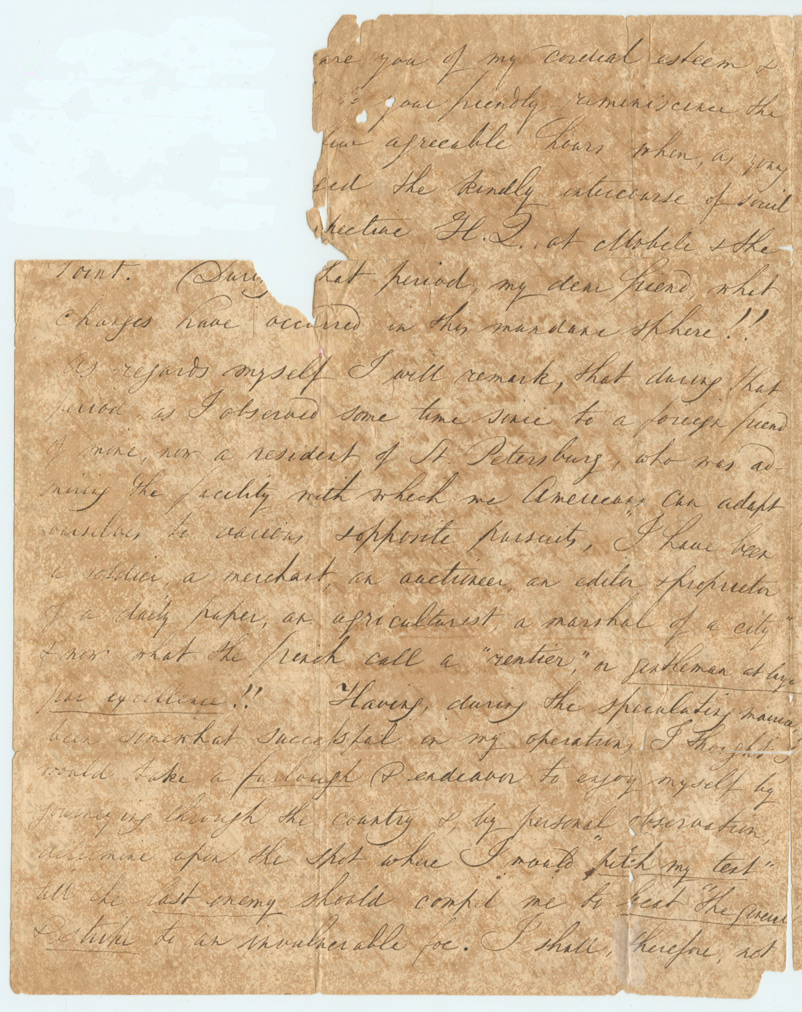 are you of my cordial esteem &
to your friendly reminiscence the
few agreeable hours when, as young
ged the kindly intercourse of social
pective H. Q. at Mobile & the
Point. During that period, my dear friend, what
changes have occurred in this mundane sphere!!
As regards myself I will remark, that during that
period, as I observed some time since to a foreign friend
of mine, now a resident of St Petersburg, who was ad-
miring the facility with which we Americans can adapt
ourselves to various & opposite pursuits, "I have been
a soldier, a merchant, an auctioneer, an editor & proprietor
of a daily paper, an agriculturist a marshal of a city"
& now what the french call a "rentier," or gentleman at large
par excellence!! Having, during the speculating mania
been somewhat successful in my operations, I thought I
would take a furlough & endeavor to enjoy myself by
journeying through the country &, by personal observation,
determine upon the spot where I would "pitch my tent"
till the last enemy should compel me to beat "the general
& strike to an invulnerable foe. I shall, therefore, not